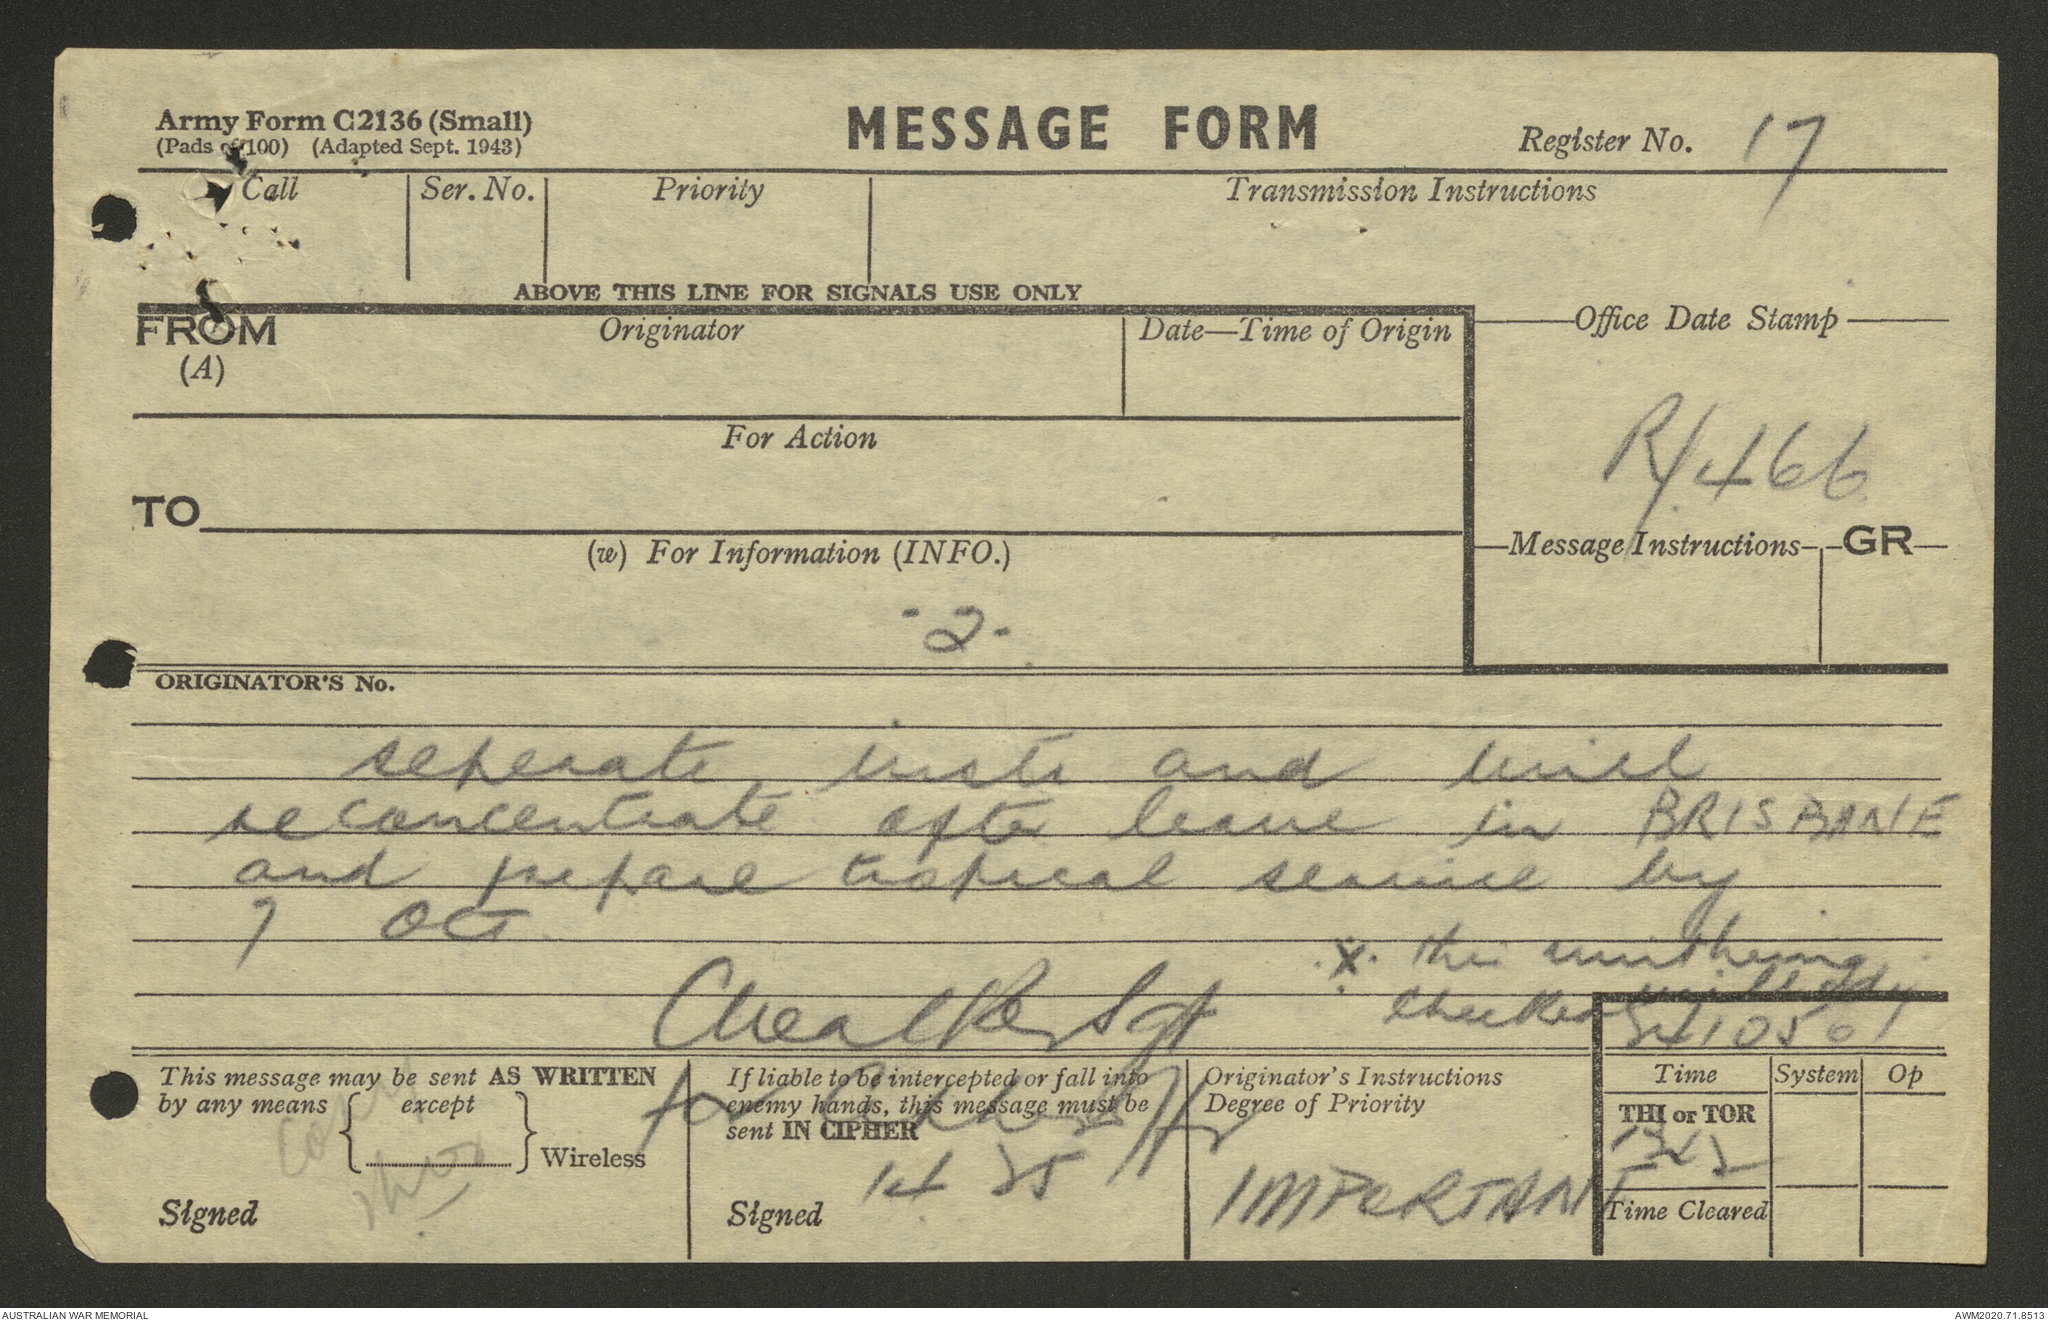 Army Form C2136 (Small)
(Pads of 100) (Adapted Sept. 1943)
MESSAGE FORM
Register No. 17
Call
Ser. No.
Priority
Transmission Instructions
ABOVE THIS LINE FOR SIGNALS USE ONLY
FROM
(A)
Originator
Date—Time of Origin
Office Date Stamp
For Action
R/466
TO
(w) For Information (INFO.)
Message Instructions
GR
-2-
ORIGINATOR'S No.
seperate insts and will
reconcentrate after leave in BRISBANE
and prepare tropical service by
7 Oct.
X this
checked
Sgt
This message may be sent AS WRITTEN
by any means except
Wireless
Signed
If liable to be intercepted or fall into
enemy hands, this message must be
sent IN CIPHER
for
1435
Signed
Originator's Instructions
Degree of Priority
IMPORTANT
Time
System
Op
THI or TOR
Time Cleared
AUSTRALIAN WAR MEMORIAL
AWM2020.71.8513